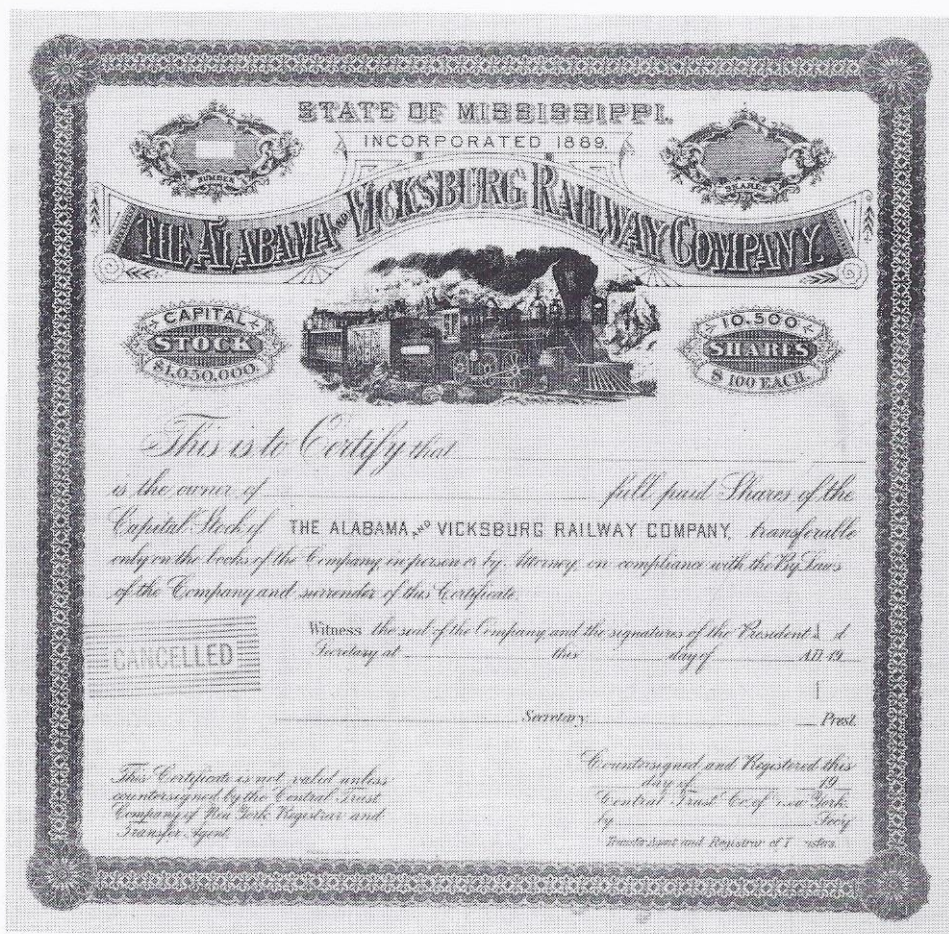 STATE OF MISSISSIPPI.
INCORPORATED 1889.
NUMBER
SHARES
THE ALABAMA AND VICKSBURG RAILWAY COMPANY.
CAPITAL
STOCK
$1,050,000.
10,500
SHARES
$100 EACH.
This is to Certify that
is the owner of full paid Shares of the
Capital Stock of THE ALABAMA AND VICKSBURG RAILWAY COMPANY, transferable
only on the books of the Company in person or by Attorney, on compliance with the By Laws
of the Company and surrender of this Certificate.
Witness the seal of the Company and the signatures of the President
Secretary at this day of A.D. 19
CANCELLED
Secretary. Prest.
This Certificate is not valid unless
countersigned by the Central Trust
Company of New York Registrar and
Transfer Agent.
Countersigned and Registered this
day of 19
Central Trust Co. of New York.
by Secy
Transfer Agent and Registrar of